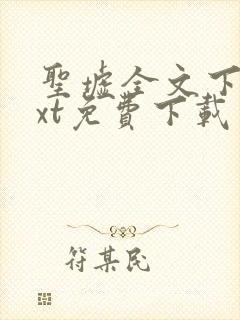 聖墟全文下
xt免費下載
符某民